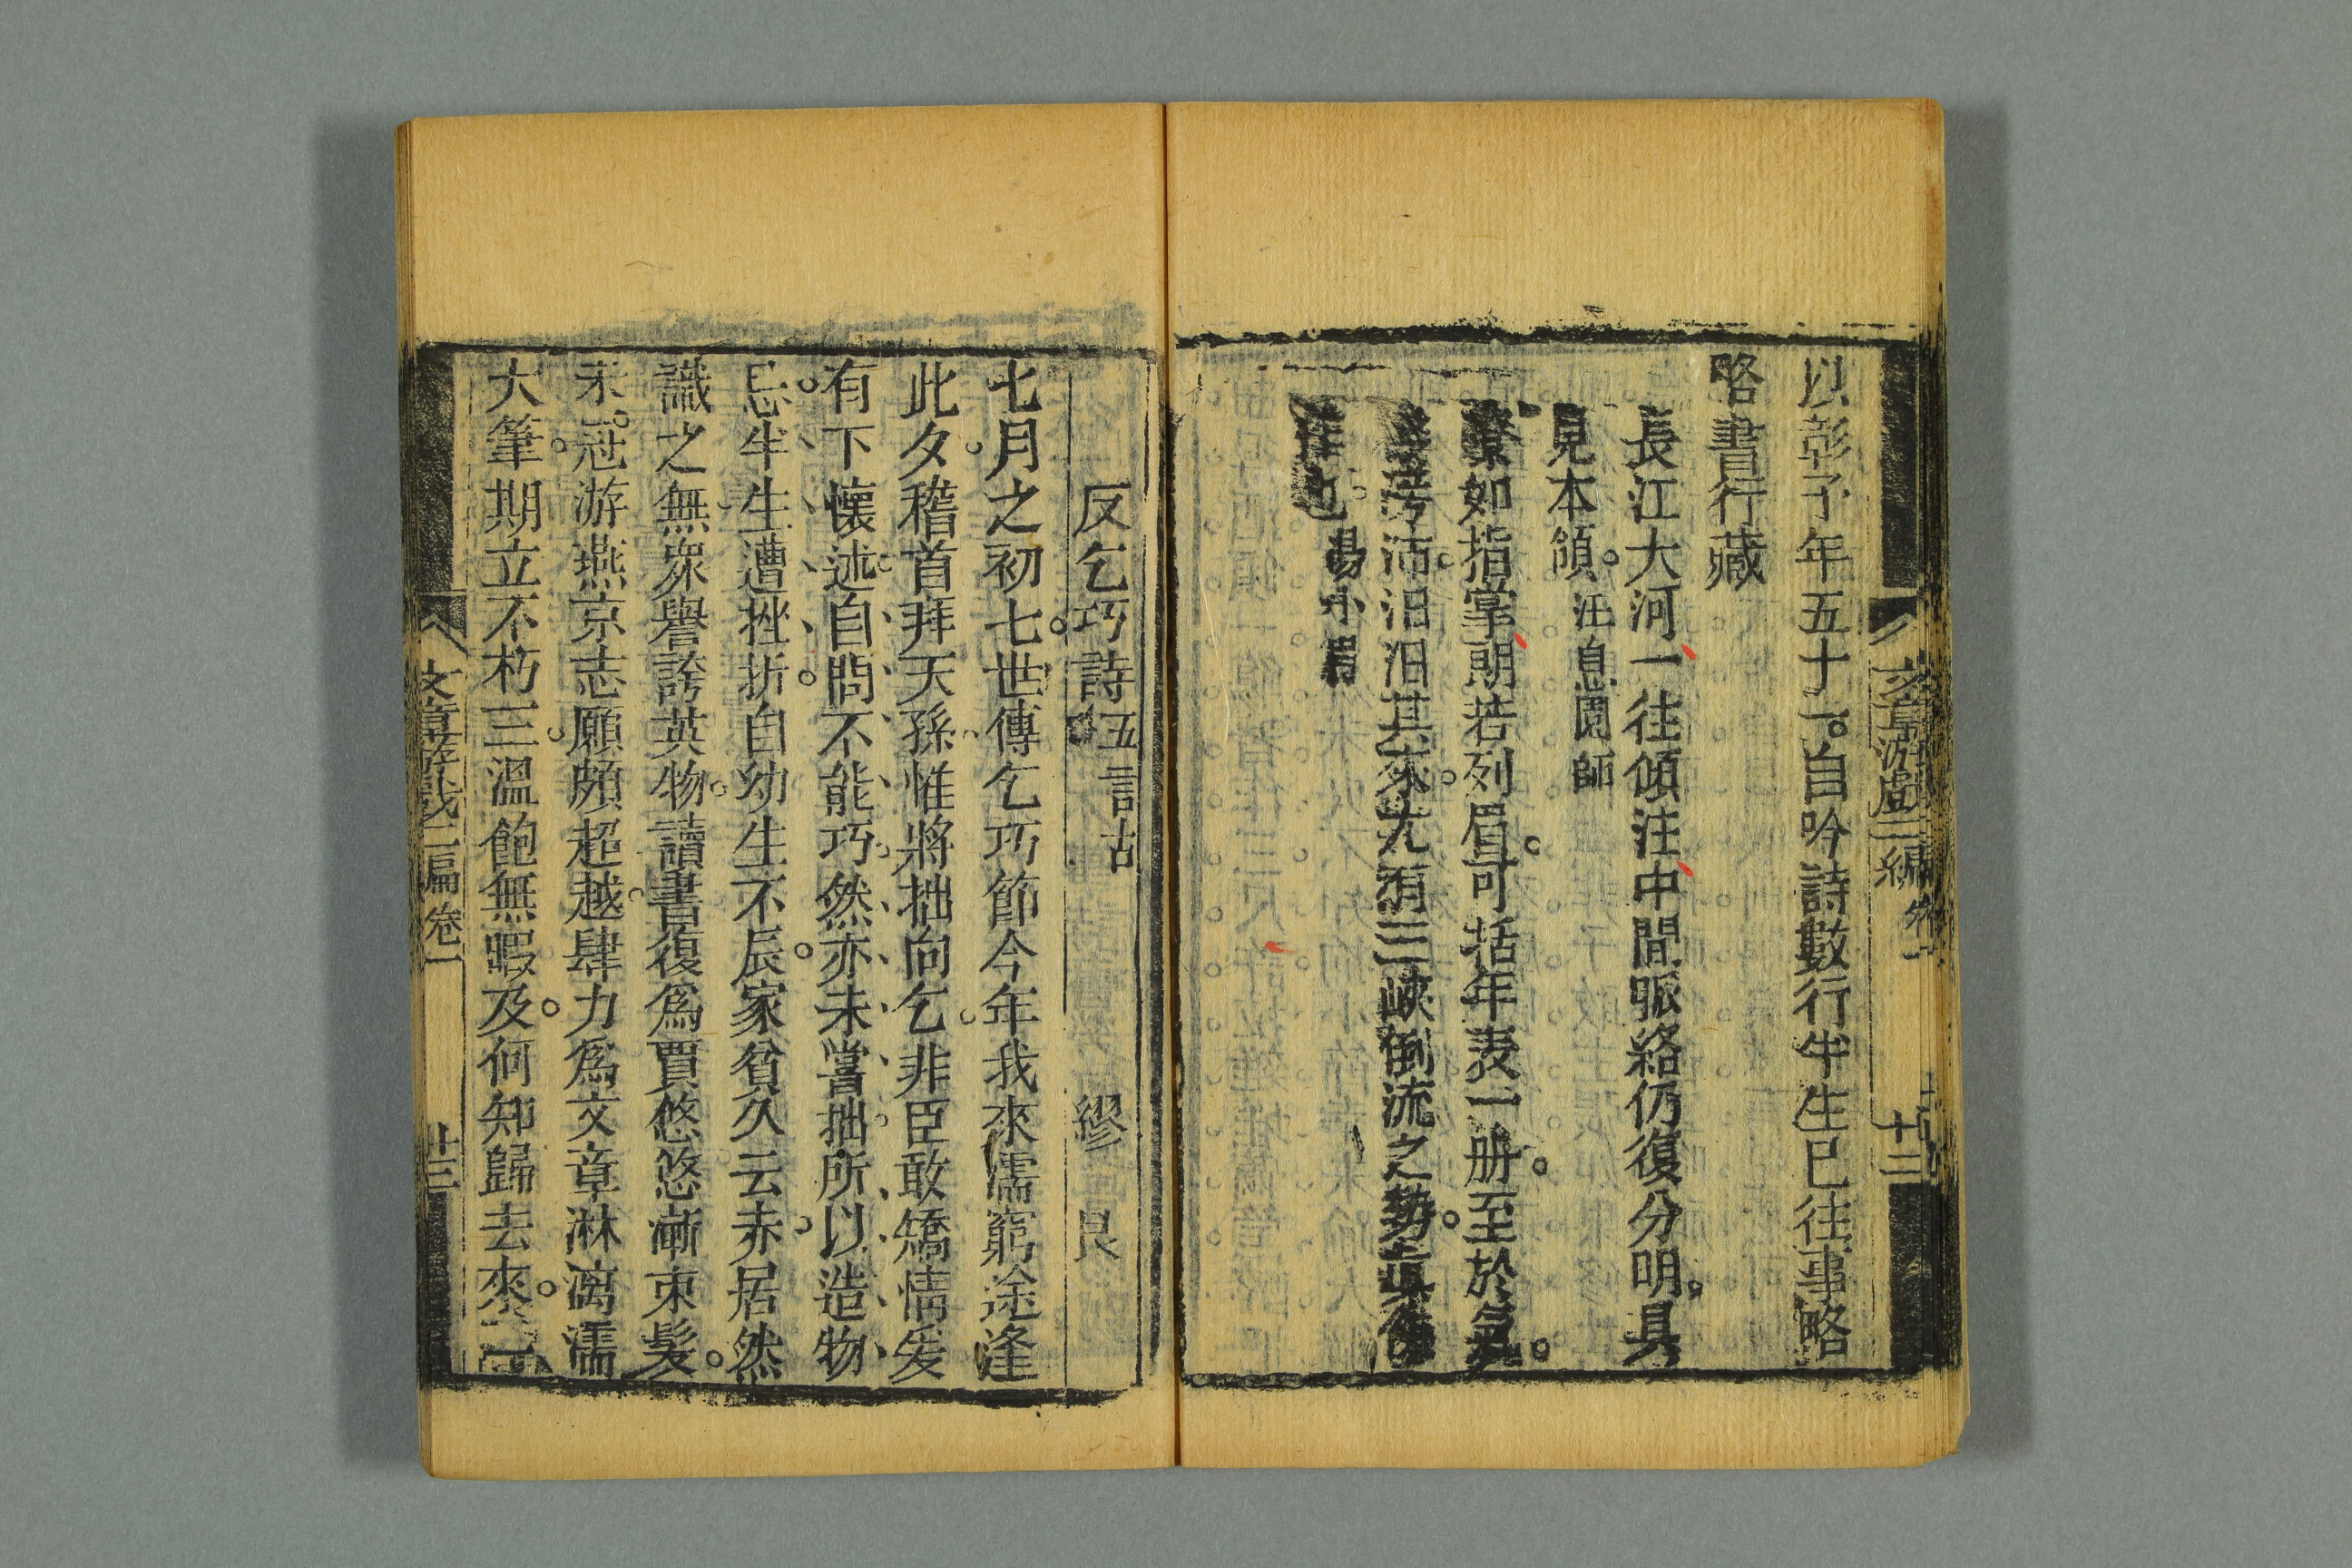 文章游戲三編 卷一 十二
以彭予年五十一自吟詩數行半生已往事略
略書行藏
長江大河一往傾注中間脈絡仍復分明具
見本領 汪息園師
如指掌朗若列眉可括年表一册至於
沛汨汨其來尤有三峽倒流之勢真
也 易小眉
反乞巧詩 五言古 繆艮
七月之初七世傳乞巧節今年我來濡窮途逢
此夕稽首拜天孫惟將拙向乞非臣敢矯情爰
有下懷述自問不能巧然亦未嘗拙所以造物
忌半生遭挫折自幼生不辰家貧久云赤居然
識之無衆譽誇英物讀書復爲賈悠悠漸束髮
未冠游燕京志願頗超越肆力爲文章淋漓濡
大筆期立不朽三溫飽無暇及何知歸去來二
文章游戲三編 卷一 廿三